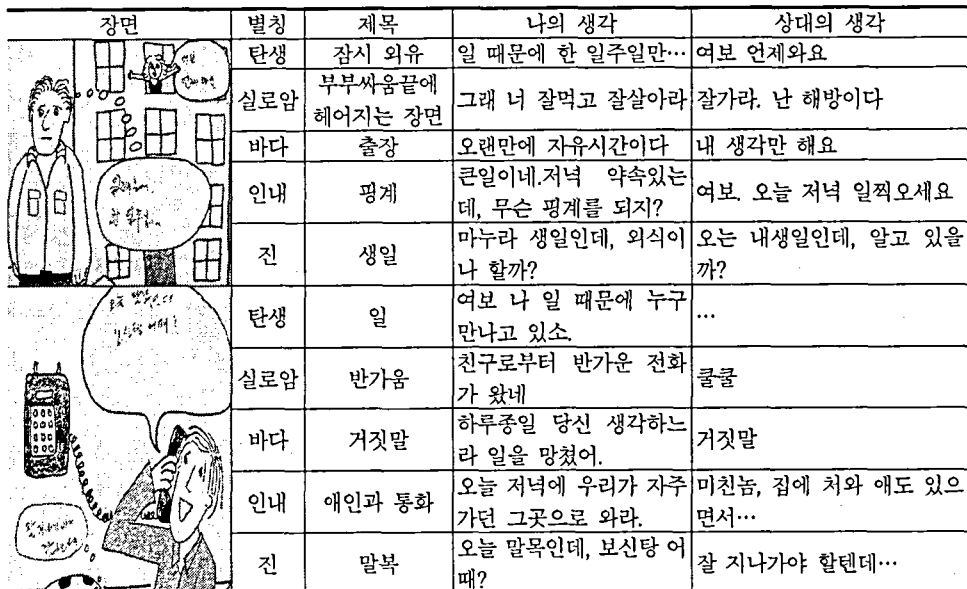 장면 별칭 제목 나의 생각 상대의 생각
탄생 잠시 외유 일 때문에 한 일주일만… 여보 언제와요
실로암 부부싸움끝에
헤어지는 장면 그래 너 잘먹고 잘살아라 잘가라. 난 해방이다
바다 출장 오랜만에 자유시간이다 내 생각만 해요
인내 핑계 큰일이네.저녁 약속있는
데, 무슨 핑계를 되지? 여보. 오늘 저녁 일찍오세요
진 생일 마누라 생일인데, 외식이
나 할까? 오는 내생일인데, 알고 있을
까?
탄생 일 여보 나 일 때문에 누구
만나고 있소. …
실로암 반가움 친구로부터 반가운 전화
가 왔네 쿨쿨
바다 거짓말 하루종일 당신 생각하느
라 일을 망쳤어. 거짓말
인내 애인과 통화 오늘 저녁에 우리가 자주
가던 그곳으로 와라. 미친놈, 집에 처와 애도 있으
면서…
진 말복 오늘 말목인데, 보신탕 어
때? 잘 지나가야 할텐데…